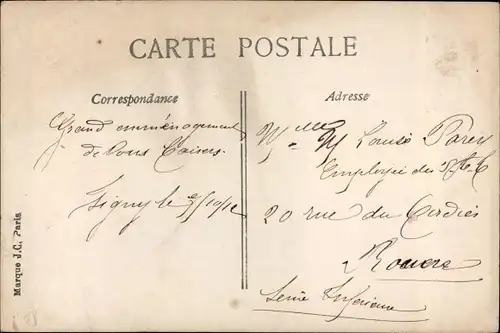 CARTE POSTALE
Correspondance
Grand emménagement
de bons Baisers
Signy le 5/10/12
Adresse
Mlle M Louise Parey
Employée des
20 rue du
Rouen
Seine Inférieure
Marque J.C. Paris